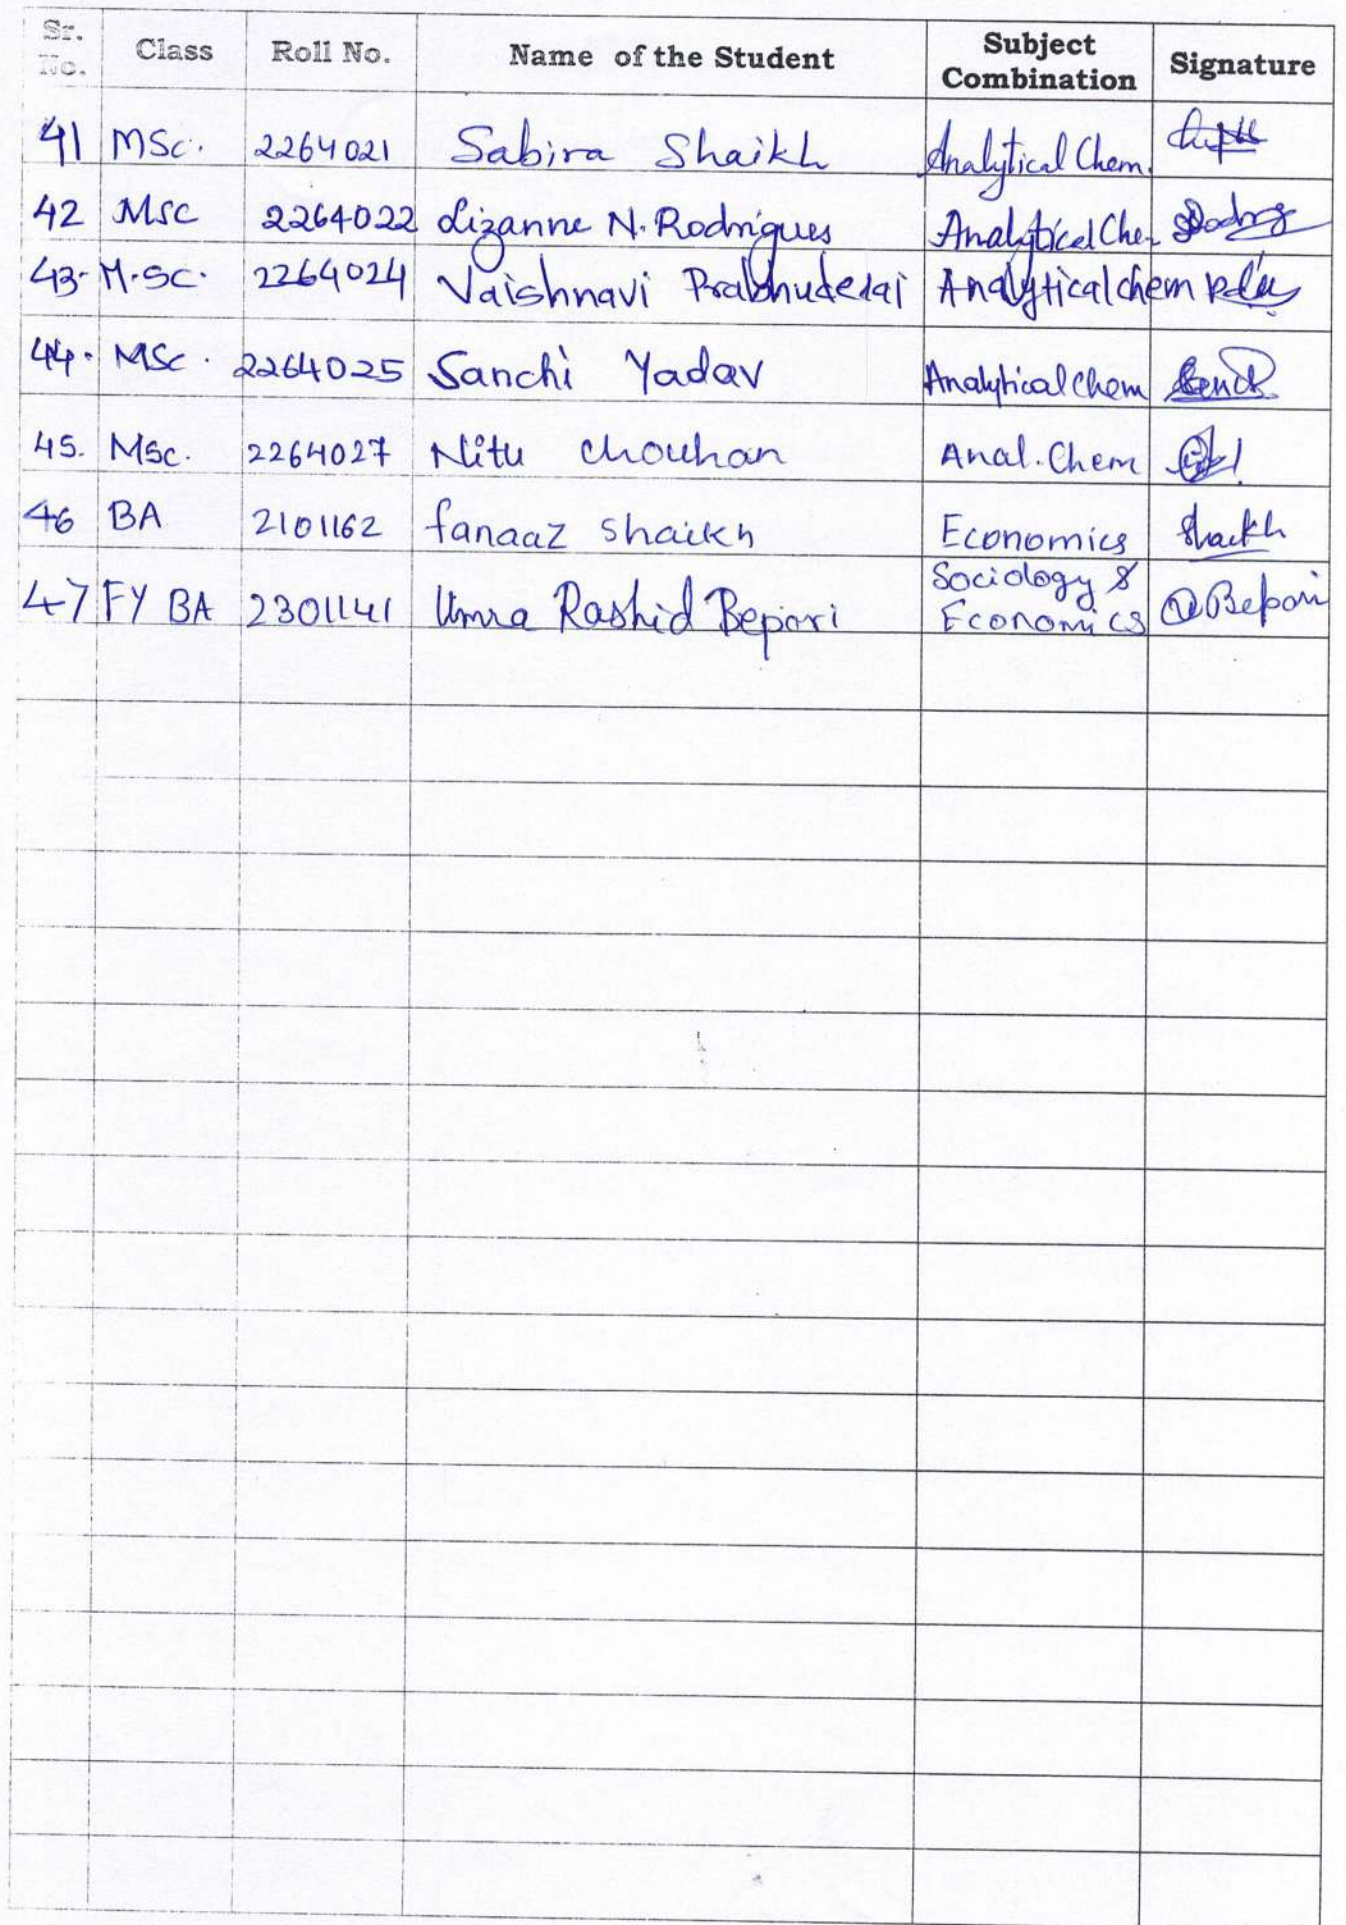 Sr. No. Class Roll No. Name of the Student Subject Combination Signature
41 MSc. 2264021 Sabira Shaikh Analytical Chem.
42 MSC 2264022 Lizanne N. Rodrigues Analytical Che
43. M.SC. 2264024 Vaishnavi Prabhudesai Analytical chem
44. MSc. 2264025 Sanchi Yadav Analytical Chem
45. MSc. 2264027 Nitu Chouhan Anal. Chem
46 BA 2101162 fanaaz shaikh Economics Shaikh
47 FY BA 2301141 Umra Rashid Bepari Sociology & Economics Bepari